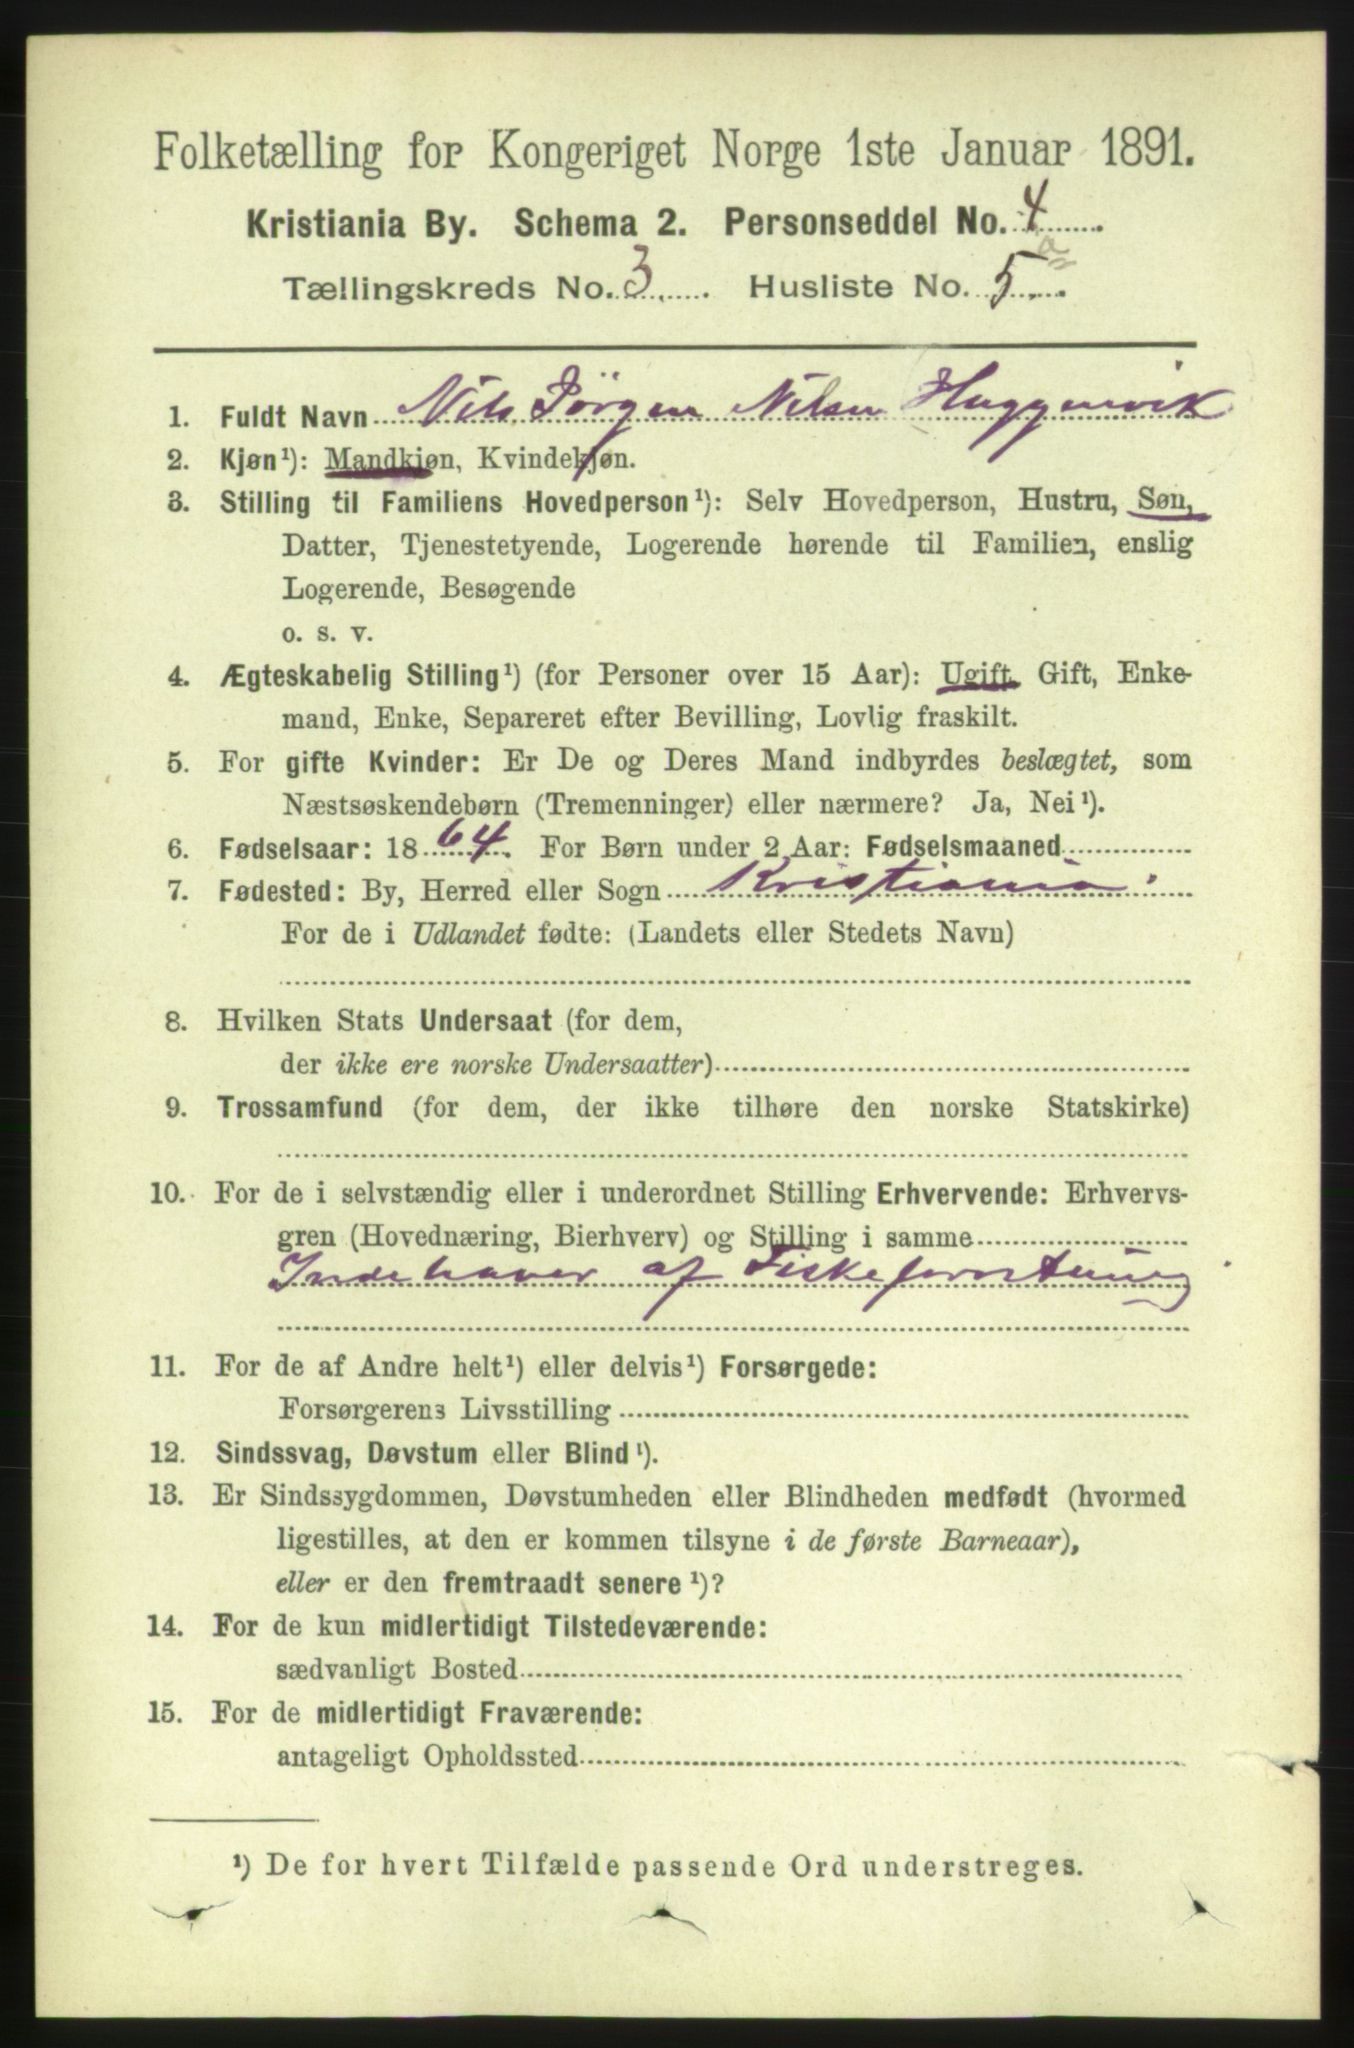 Folketælling for Kongeriget Norge 1ste Januar 1891.
Kristiania By. Schema 2. Personseddel No. 4
Tællingskreds No. 3 Husliste No. 5 a
1. Fuldt Navn Nils Jörgen Nilsen Huggenvik
2. Kjøn¹): Mandkjøn, Kvindekjøn.
3. Stilling til Familiens Hovedperson¹): Selv Hovedperson, Hustru, Søn,
Datter, Tjenestetyende, Logerende hørende til Familien, enslig
Logerende, Besøgende
o. s. v.
4. Ægteskabelig Stilling¹) (for Personer over 15 Aar): Ugift, Gift, Enke-
mand, Enke, Separeret efter Bevilling, Lovlig fraskilt.
5. For gifte Kvinder: Er De og Deres Mand indbyrdes beslægtet, som
Næstsøskendebørn (Tremenninger) eller nærmere? Ja, Nei¹).
6. Fødselsaar: 1864. For Børn under 2 Aar: Fødselsmaaned
7. Fødested: By, Herred eller Sogn Kristiania
For de i Udlandet fødte: (Landets eller Stedets Navn)
8. Hvilken Stats Undersaat (for dem,
der ikke ere norske Undersaatter)
9. Trossamfund (for dem, der ikke tilhøre den norske Statskirke)
10. For de i selvstændig eller i underordnet Stilling Erhvervende: Erhvervs-
gren (Hovednæring, Bierhverv) og Stilling i samme
Indehaver af Fiskeforretning
11. For de af Andre helt¹) eller delvis¹) Forsørgede:
Forsørgerens Livsstilling
12. Sindssvag, Døvstum eller Blind¹).
13. Er Sindssygdommen, Døvstumheden eller Blindheden medfødt (hvormed
ligestilles, at den er kommen tilsyne i de første Barneaar),
eller er den fremtraadt senere¹)?
14. For de kun midlertidigt Tilstedeværende:
sædvanligt Bosted
15. For de midlertidigt Fraværende:
antageligt Opholdssted
¹) De for hvert Tilfælde passende Ord understreges.